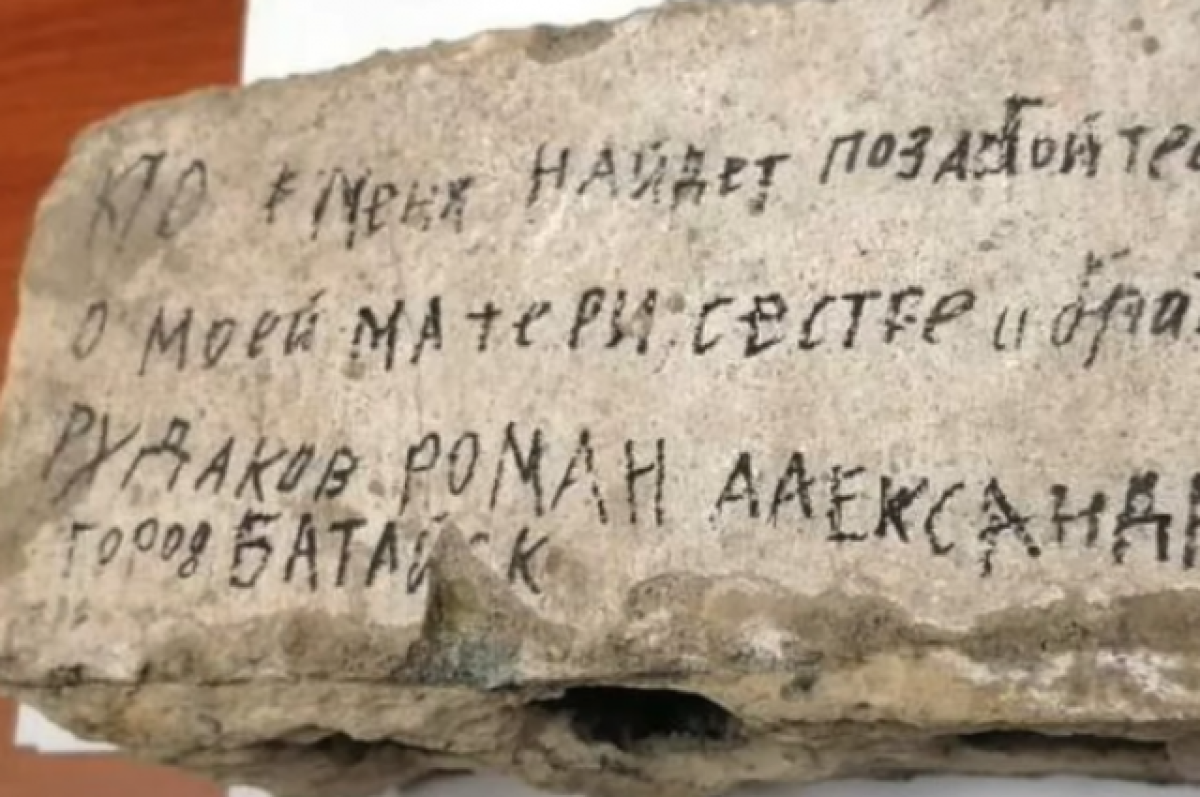 КТО меня НАЙДЕТ ПОЗАБОТЕ
О моей МАтеРИ СЕСТРЕ и бра
РУДАКОВ РОМАН АЛЕКСАНДР
город БАТАЙСК